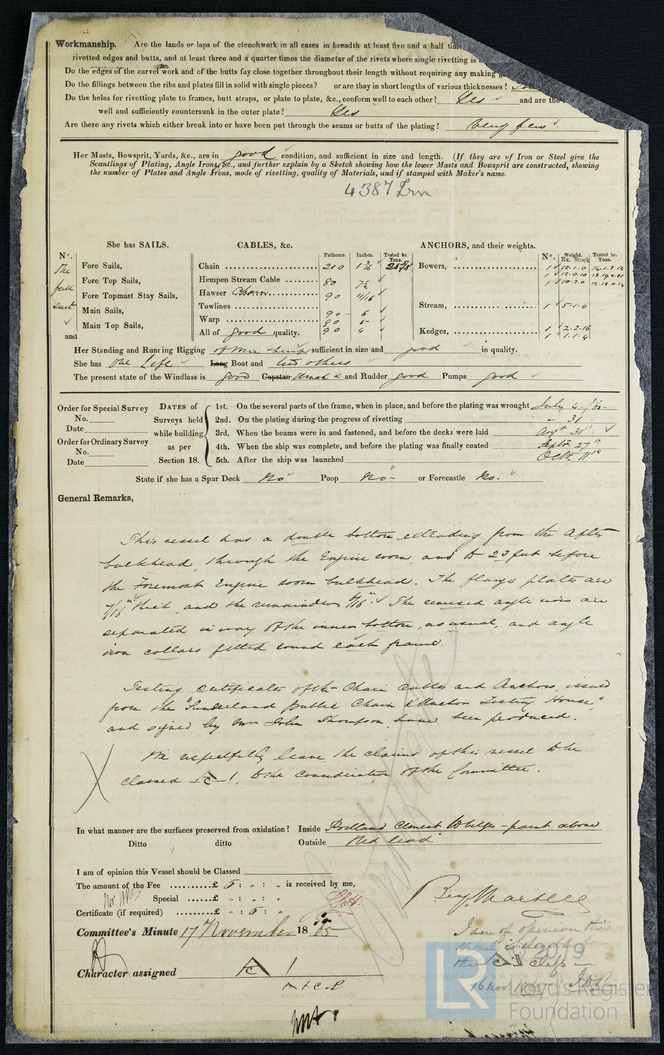 Workmanship. Are the lands or laps of the clenchwork in all cases in breadth at least five and a half tim
rivetted edges and butts, and at least three and a quarter times the diameter of the rivets where single rivetting is
Do the edges of the carvel work and of the butts fay close together throughout their length without requiring any making
Do the fillings between the ribs and plates fill in solid with single pieces? or are they in short lengths of various thicknesses?
Do the holes for rivetting plate to frames, butt straps, or plate to plate, &c., conform well to each other? Yes and are the
well and sufficiently countersunk in the outer plate? Yes
Are there any rivets which either break into or have been put through the seams or butts of the plating? very few
Her Masts, Bowsprit, Yards, &c., are in good condition, and sufficient in size and length. (If they are of Iron or Steel give the
Scantlings of Plating, Angle Irons, &c., and further explain by a Sketch showing how the lower Masts and Bowsprit are constructed, showing
the number of Plates and Angle Irons, mode of rivetting, quality of Materials, and if stamped with Maker's name.
4387 Irn
She has SAILS. CABLES, &c. ANCHORS, and their weights.
N°. Fathoms. Inches. Tested to Tons. N°. Weight. Ex. Stock Tested to Tons.
Fore Sails, Chain 210 Bowers,
Fore Top Sails, Hempen Stream Cable 80
Fore Topmast Stay Sails, Hawser Chain 90
Main Sails, Towlines 90 6 Stream, 1 5-1-0
Main Top Sails, Warp 90 5
and All of good quality. 90 4 Kedges, 1 2-2-16
1 1-1-4
Her Standing and Running Rigging of Wire & Hemp sufficient in size and good in quality.
She has One Life Long Boat and two others
The present state of the Windlass is good Capstan and Rudder good Pumps good
Order for Special Survey No. Date
Order for Ordinary Survey No. Date
DATES of Surveys held while building as per Section 18.
1st. On the several parts of the frame, when in place, and before the plating was wrought July 4 /65
2nd. On the plating during the progress of rivetting " 31
3rd. When the beams were in and fastened, and before the decks were laid Augt 31
4th. When the ship was complete, and before the plating was finally coated Septr 27th
5th. After the ship was launched Octr 11th
State if she has a Spar Deck No Poop No or Forecastle No.
General Remarks,
This vessel has a double bottom extending from the After
bulkhead, through the Engine room, and to 23 feet before
the Foremost Engine room bulkhead. The flange plates are
7/16 thick, and the remainder The reversed angle irons are
separated in way of the inner bottom, as usual, and angle
iron collars fitted round each frame.
Testing certificates of the Chain Cables and Anchors, issued
from the "Sunderland Public Chain & Anchor Testing House,"
and signed by Mr John Thompson, have been produced.
We respectfully leave the claims of this vessel to be
classed A 1, to the consideration of the Committee.
X
In what manner are the surfaces preserved from oxidation? Inside Portland Cement to Bilges - paint above
Ditto ditto Outside Red lead
I am of opinion this Vessel should be Classed
The amount of the Fee £ 5 : - : - is received by me,
Special £ - : - : -
Certificate (if required) £ - : 5 : -
Committee's Minute 17 November 1865
Character assigned A 1
A & C P
I am of opinion this
16 Nov 1865
© 2019
LR
Lloyd's Register
Foundation